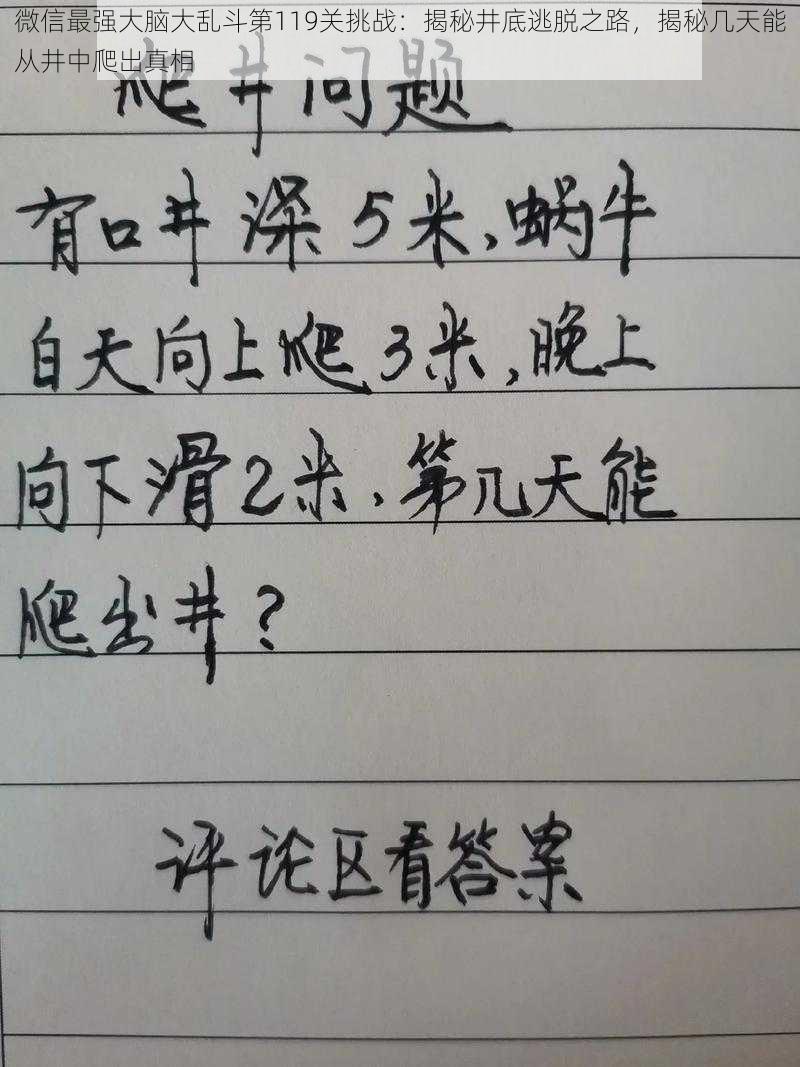 微信最强大脑大乱斗第119关挑战：揭秘井底逃脱之路，揭秘几天能
从井中爬出真相
爬井问题
有口井深5米,蜗牛
白天向上爬3米,晚上
向下滑2米、第几天能
爬出井?
评论区看答案